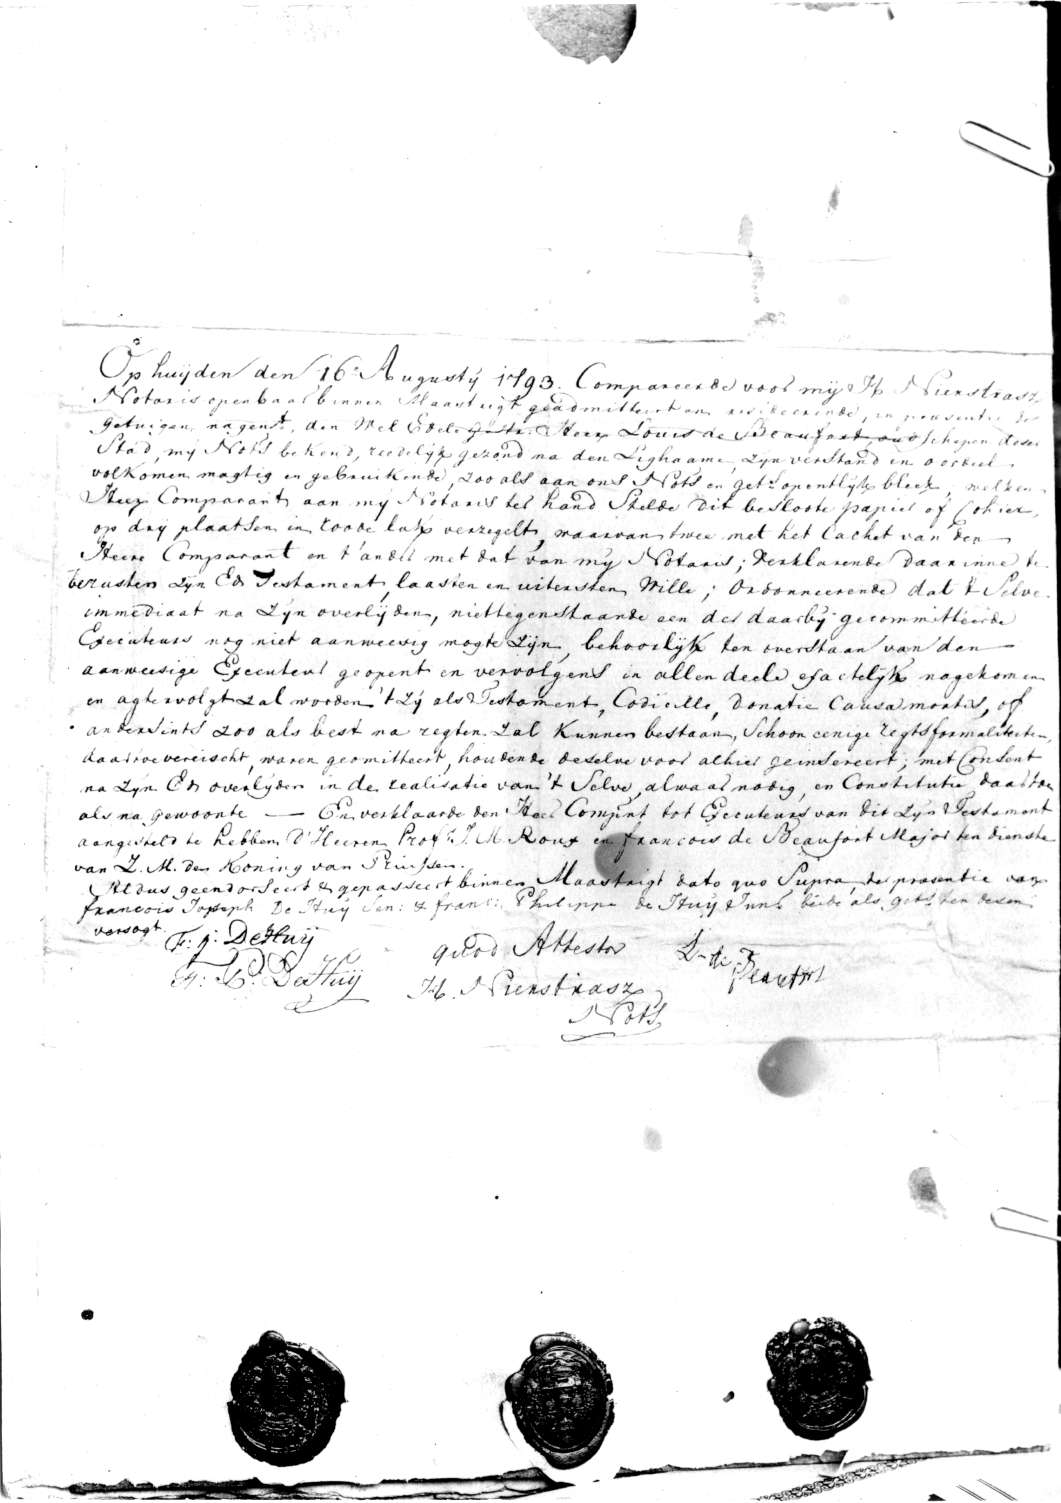 Op huijden den 16.e Augustij 1793. Compareerde voor mij H. Nierstrasz
Notaris openbaar binnen Maastrigt geadmitteert en resideerende, in presentie der
getuigen nagent, den Wel Edele Heer Louis de Beaufort oud schepen deser
Stad, mij Nots bekend, reedelijk gezond na den Lighaame, zyn verstand en oordeel
volkomen magtig en gebruikende, zoo als aan ons Nots en get: opentlijk bleek, welken
Heer Comparant aan mij Notaris ter hand Stelde dit beslote papier of Cohier,
op drij plaatsen in roode lak verzegelt, waarvan twee met het Cachet van den
Heere Comparant en t'ander met dat van mij Notaris; Verklarende daar inne te
berusten Zijn Ed Testament, laasten en uitersten Wille; Ordonneerende dat 't Selve
immediaat na Zijn overlijden, niettegenstaande een der daarbij gecommitteerde
Executeurs nog niet aanweesig mogte Zijn, behoorlijk ten overstaan van den
aanweesige Executeur geopent en vervolgens in allen deele exactelijk nagekomen
en agtervolgt zal worden 't Zij als Testament, Codicille, donatie Causa mortis, of
andersints zoo als best na regten Zal Kunnen bestaan, Schoon eenige regtsformaliteiten,
daartoe vereischt, waren geomitteert, houdende deselve voor alhier geinsereert; met Consent
na Zijn Ed overlijden in de realisatie van 't Selve, alwaar nodig, en Constitutie daartoe
als na gewoonte — En verklaarde den Heer Compnt tot Executeurs van dit Zijn Testament
aangesteld te hebben D'Heeren Profr. J. M. Roux en francois de Beaufort Major ten dienste
van Z. M. den Koning van Pruissen.
Aldus geendosseert & gepasseert binnen Maastrigt dato quo Supra, ter presentie van
francois Joseph De Huij Sen: & franc: Philippe de Huij Junr beide als get: ten desen
versogt.
F: j: DeHuij
quod Attestor
L. de Beaufort
F: P: DeHuij
H. Nierstrasz
Nots